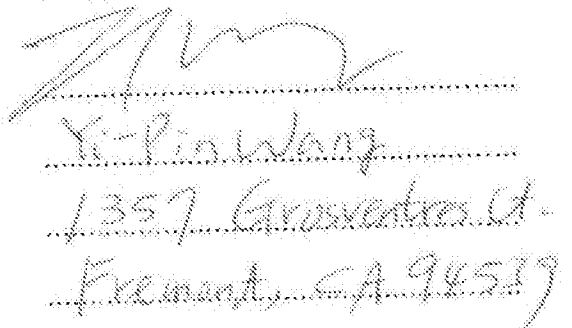 Yi-Pin Wang
1357 Grosventres Ct.
Fremont, CA 94539